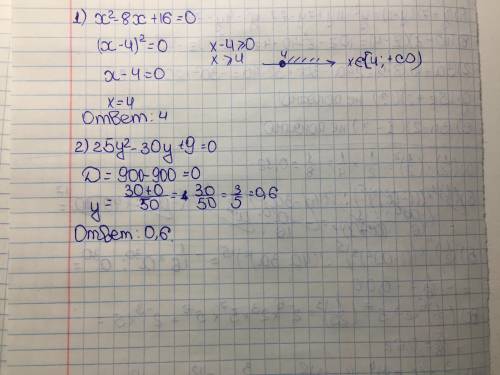 1) x²-8x+16=0
(x-4)²=0 x-4⩾0
x-4=0 x⩾4 4 x∈[4;+∞)
x=4
Ответ: 4
2) 25y²-30y+9=0
D=900-900=0
y=(30+0)/50=30/50=3/5=0,6
Ответ: 0,6.